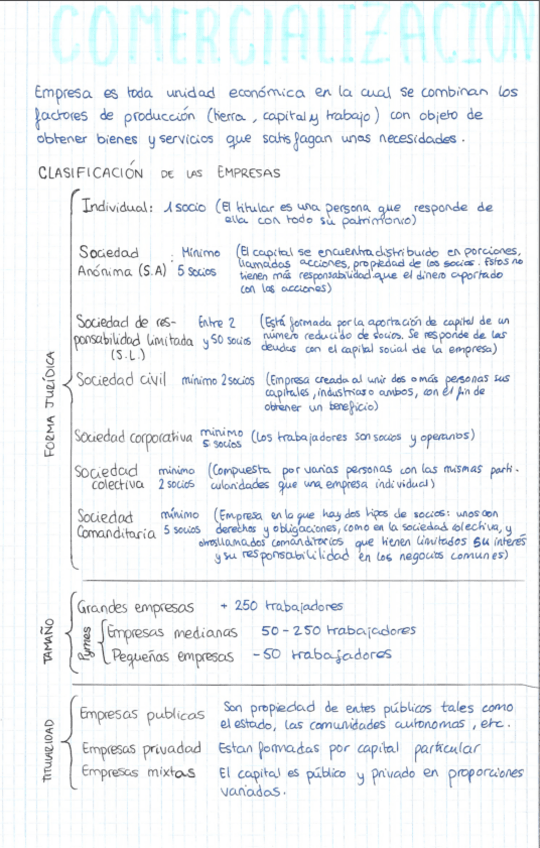 COMERCIALIZACION
Empresa es toda unidad económica en la cual se combinan los
factores de producción (tierra, capital y trabajo) con objeto de
obtener bienes y servicios que satisfagan unas necesidades.
CLASIFICACIÓN DE LAS EMPRESAS
FORMA JURÍDICA
Individual: 1 socio (El titular es una persona que responde de
ella con todo su patrimonio)
Sociedad : Mínimo (El capital se encuentra distribuido en porciones,
Anónima (S.A) 5 socios llamadas acciones, propiedad de los socios. Estos no
tienen más responsabilidad que el dinero aportado
con las acciones)
Sociedad de res- Entre 2 (Está formada por la aportación de capital de un
ponsabilidad limitada y 50 socios número reducido de socios. Se responde de las
(S.L.) deudas con el capital social de la empresa)
Sociedad civil mínimo 2 socios (Empresa creada al unir dos o más personas sus
capitales, industrias o ambos, con el fin de
obtener un beneficio)
Sociedad corporativa mínimo
5 socios (Los trabajadores son socios y operarios)
Sociedad mínimo (Compuesta por varias personas con las mismas parti-
colectiva 2 socios cularidades que una empresa individual)
Sociedad mínimo (Empresa en la que hay dos tipos de socios: unos con
Comanditaria 5 socios derechos y obligaciones, como en la sociedad colectiva, y
otros llamados comanditarios que tienen limitados su interés
y su responsabililidad en los negocios comunes)
TAMAÑO
Grandes empresas + 250 trabajadores
Pymes
Empresas medianas 50 - 250 trabajadores
Pequeñas empresas - 50 trabajadores
TITULARIDAD
Empresas publicas Son propiedad de entes públicos tales como
el estado, las comunidades autonomas, etc.
Empresas privadad Estan formadas por capital particular
Empresas mixtas El capital es público y privado en proporciones
variadas.